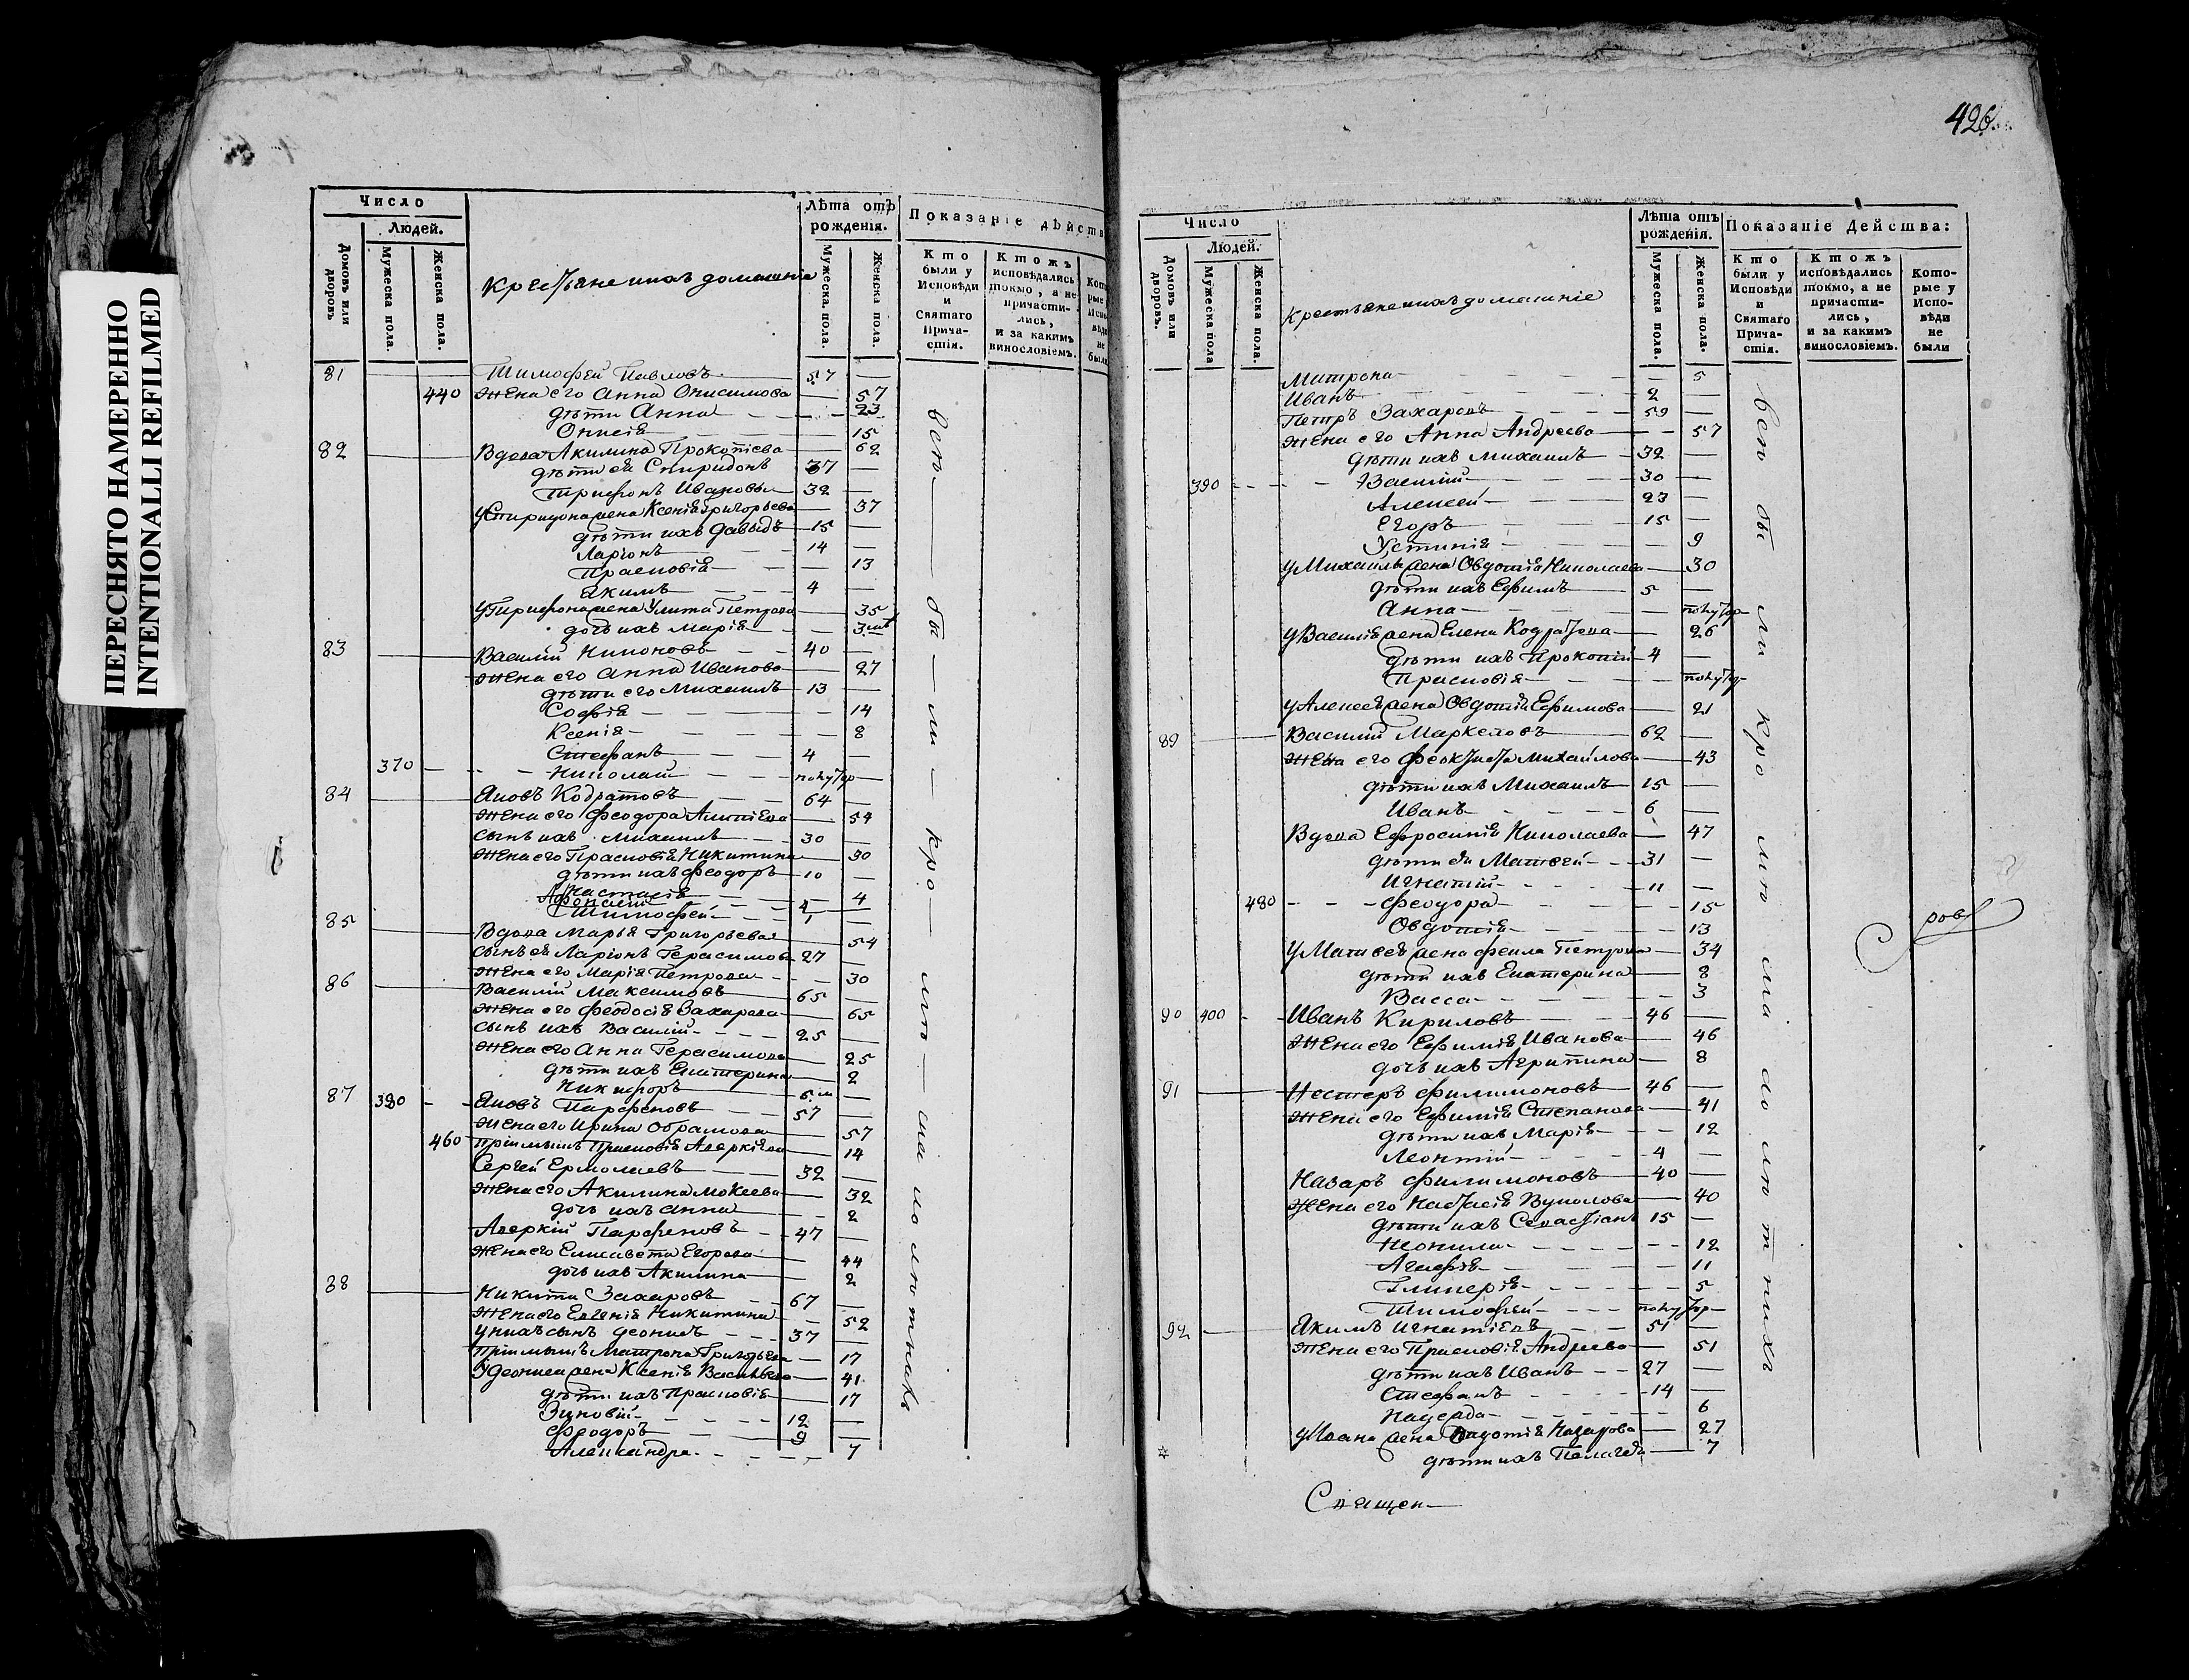 ПЕРЕСНЯТО НАМЕРЕННО
INTENTIONALLI REFILMED
Число
Людей.
Домовъ или дворовъ
Мужеска пола.
Женска пола.
Крестьяне ихъ домашніе
Лѣта отъ рожденія.
Мужеска пола.
Женска пола.
Показаніе дѣйств
Кто были у Исповѣди и Святаго Прича-стія.
Ктожъ исповѣдались токмо, а не причасти-лись, и за какимъ винословіемъ.
Кото рые Испо вѣди не были
81 Тимофей Павловъ 57
440 жена его Анна Онисимова 57
дѣти Анна 23
Онисія 15
82 Вдова Акилина Прокопіева 62
дѣти ея Спиридонъ 37
Трифонъ Ивановы 32
У Спиридона жена Ксенія Григорьева 37
дѣти ихъ Давыдъ 15
Ларіонъ 14
Прасковія 13
Якимъ 4
У Трифона жена Улита Петрова 35
дочь ихъ Марія 3
83 Василій Никоновъ 40
жена его Анна Иванова 27
дѣти его Михаилъ 13
Софія 14
Ксенія 8
Стефанъ 4
370 Николай полутор
84 Яковъ Кодратовъ 64
жена его Феодора 54
сынъ ихъ Михаилъ 30
жена его Прасковія Никитина 30
дѣти ихъ Феодоръ 10
Анастасія 4
Афанасій 2
Тимофей 1
85 Вдова Марья Григорьева 54
сынъ ея Ларіонъ Герасимовъ 27
жена его Марія Петрова 30
86 Василій Максимовъ 65
жена его Феодосія Захарова 65
сынъ ихъ Василій 25
жена его Анна Герасимова 25
дѣти ихъ Екатерина 2
Никифоръ 6 м
87 380 Яковъ Парфеновъ 57
жена его Ирина Обрамова 57
460 пріимышъ Прасковія Аверкіева 14
Сергей Ермолаевъ 32
жена его Акилина Мокеева 32
дочь ихъ Анна 2
Аверкій Парфеновъ 47
жена его Елисавета Егорова 44
дочь ихъ Акилина 2
88 Никита Захаровъ 67
жена его Евгенія Никитина 52
у нихъ сынъ Деонисъ 37
пріимышъ Матрона Григорьева 17
У Деониса жена Ксенія Васильева 41
дѣти ихъ Прасковія 17
Зиновій 12
Феодоръ 9
Александра 7
всѣ бы ли кро мѣ ма ло лѣ тныхъ
426
Число
Людей.
Домовъ или дворовъ.
Мужеска пола
Женска пола.
Крестьяне ихъ домашніе
Лѣта отъ рожденія.
Мужеска пола.
Женска пола.
Показаніе Действа:
Кто были у Исповѣди и Святаго Прича-стія.
Ктожъ исповѣдались токмо, а не причасти-лись, и за какимъ винословіемъ.
Кото-рые у Испо-вѣди не были
Матрона 5
Иванъ 2
Петръ Захаровъ 59
жена его Анна Андреева 57
дѣти ихъ Михаилъ 32
390 Василій 30
Алексей 23
Егоръ 15
Устинія 9
у Михаила жена Овдотія Николаева 30
дѣти ихъ Ефимъ 5
Анна полутор
у Василія жена Елена Кодратова 26
дѣти ихъ Прокопій 4
Прасковія полутор
у Алексея жена Овдотія Ефимова 21
89 Василій Маркеловъ 62
жена его Феоктиста Михайлова 43
дѣти ихъ Михаилъ 15
Иванъ 6
Вдова Ефросинія Николаева 47
дѣти ея Матвей 31
Игнатій 11
480 Феодора 15
Овдотія 13
у Матвея жена Фекла Петрова 34
дѣти ихъ Екатерина 8
Васса 3
90 400 Иванъ Кириловъ 46
жена его Ефимія Иванова 46
дочь ихъ Агрипина 8
91 Нестеръ Филимоновъ 46
жена его Ефимія Степанова 41
дѣти ихъ Марія 12
Леонтій 4
Назаръ Филимоновъ 40
жена его Настасія Вуколова 40
дѣти ихъ Севастіанъ 15
Неонила 12
Агафія 11
Гликерія 5
Тимофей полутор
92 Якимъ Игнатіевъ 51
жена его Прасковія Андреева 51
дѣти ихъ Иванъ 27
Стефанъ 14
Надежда 6
у Ивана жена Овдотія Назарова 27
дѣти ихъ Пелагея 7
всѣ бы ли кро мѣ ма ло лѣ тныхъ
Священ